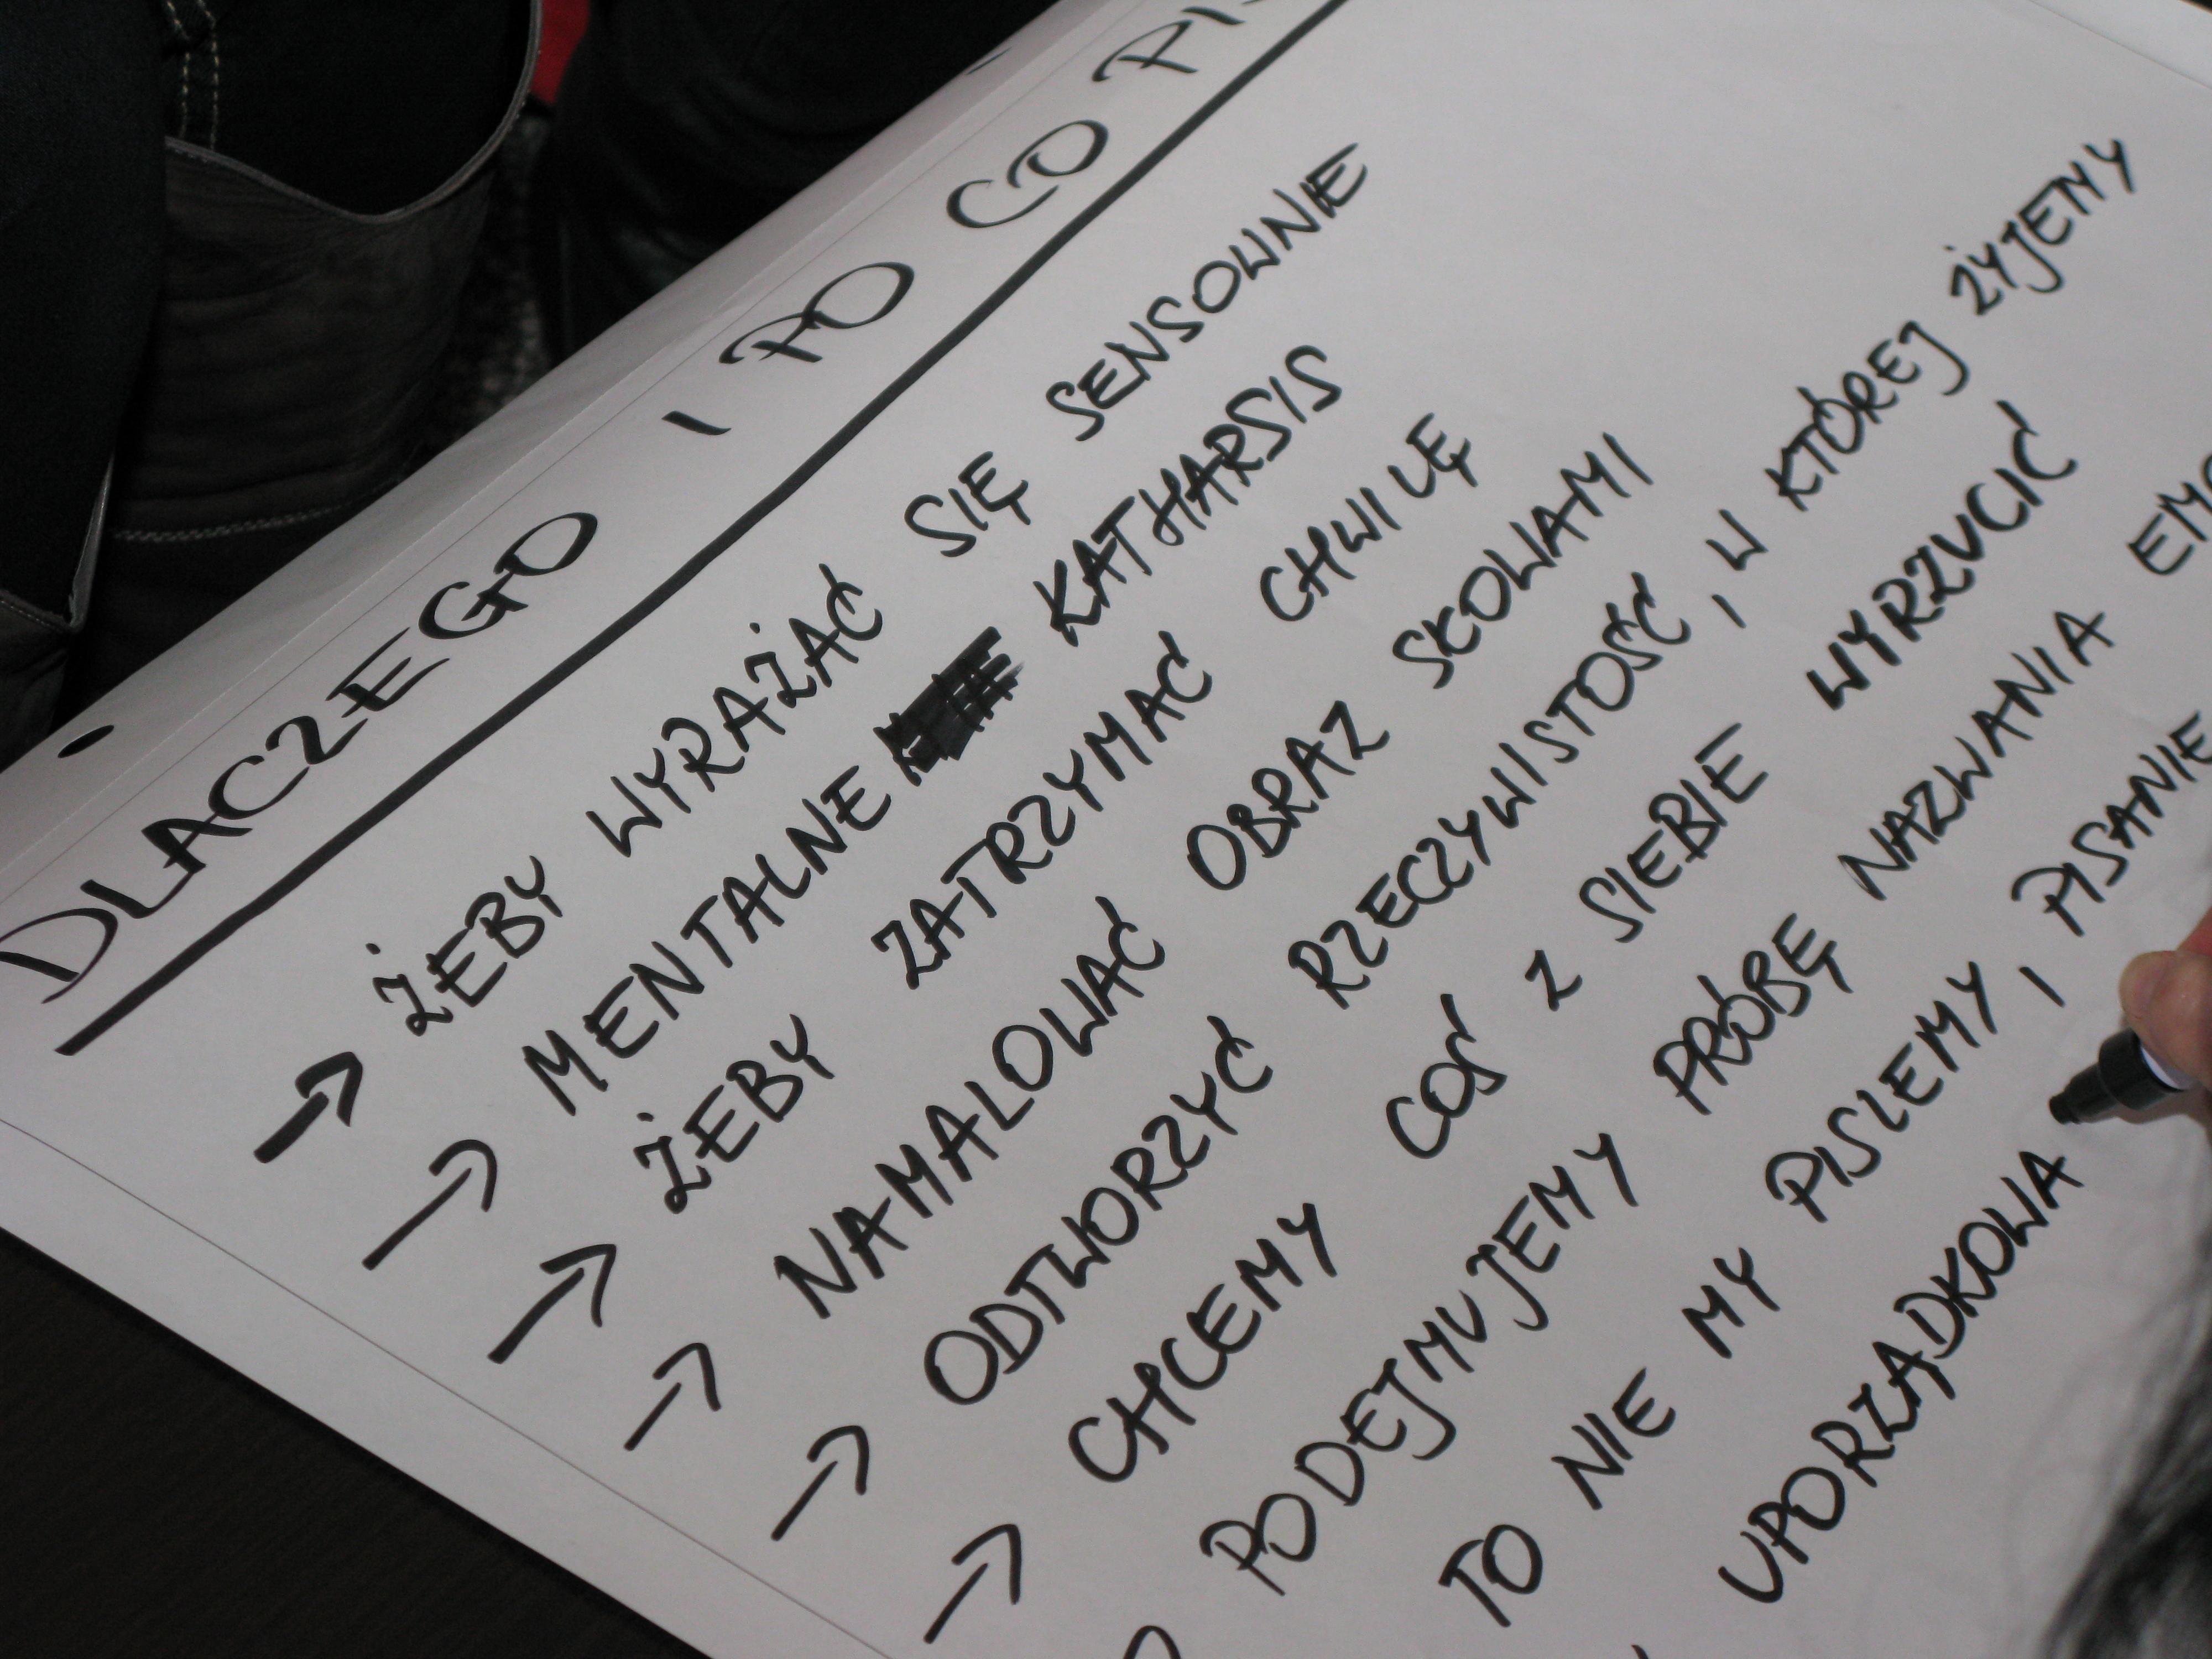 DLACZEGO I PO CO
→ ŻEBY WYRAŻAĆ SIĘ SENSOWNIE
→ MENTALNE KATHARSIS
→ ŻEBY ZATRZYMAĆ CHWILĘ
→ NAMALOWAĆ OBRAZ SŁOWAMI
→ ODTWORZYĆ RZECZYWISTOŚĆ, W KTÓREJ ŻYJEMY
→ CHCEMY COŚ Z SIEBIE WYRZUCIĆ
PODEJMUJEMY PRÓBĘ NAZWANIA
TO NIE MY PISZEMY, PISANIE
UPORZĄDKOWA